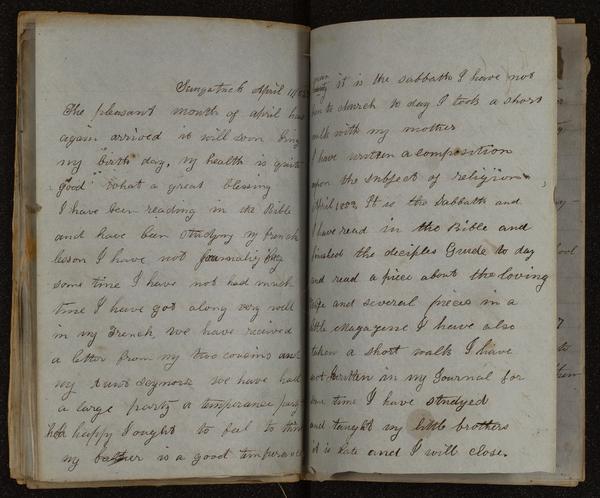 Saugatuck April 1852
The pleasant month of april has
again arrived it will soon bring
my birth day, My health is quite
good what a great blessing
I have been reading in the Bible
and have been studying my french
lesson I have not journalized
some time I have not had much
time I have got along very well
in my French We have received
a letter from my two cousins and
my Aunt Seymore We have had
a large party a temperance party
how happy I ought to feel to think
my father is a good temperance
it is the sabbath I have not
been to church to day I took a short
walk with my mother
I have written a composition
upon the subject of religion
April 1852 It is the Sabbath and
I have read in the Bible and
finished the deciples Guide to day
and read a piece about the loving
and several pieces in a
little Magazine I have also
taken a short walk I have
not written in my Journal for
some time I have studyed
and taught my little brothers
it is late and I will close.